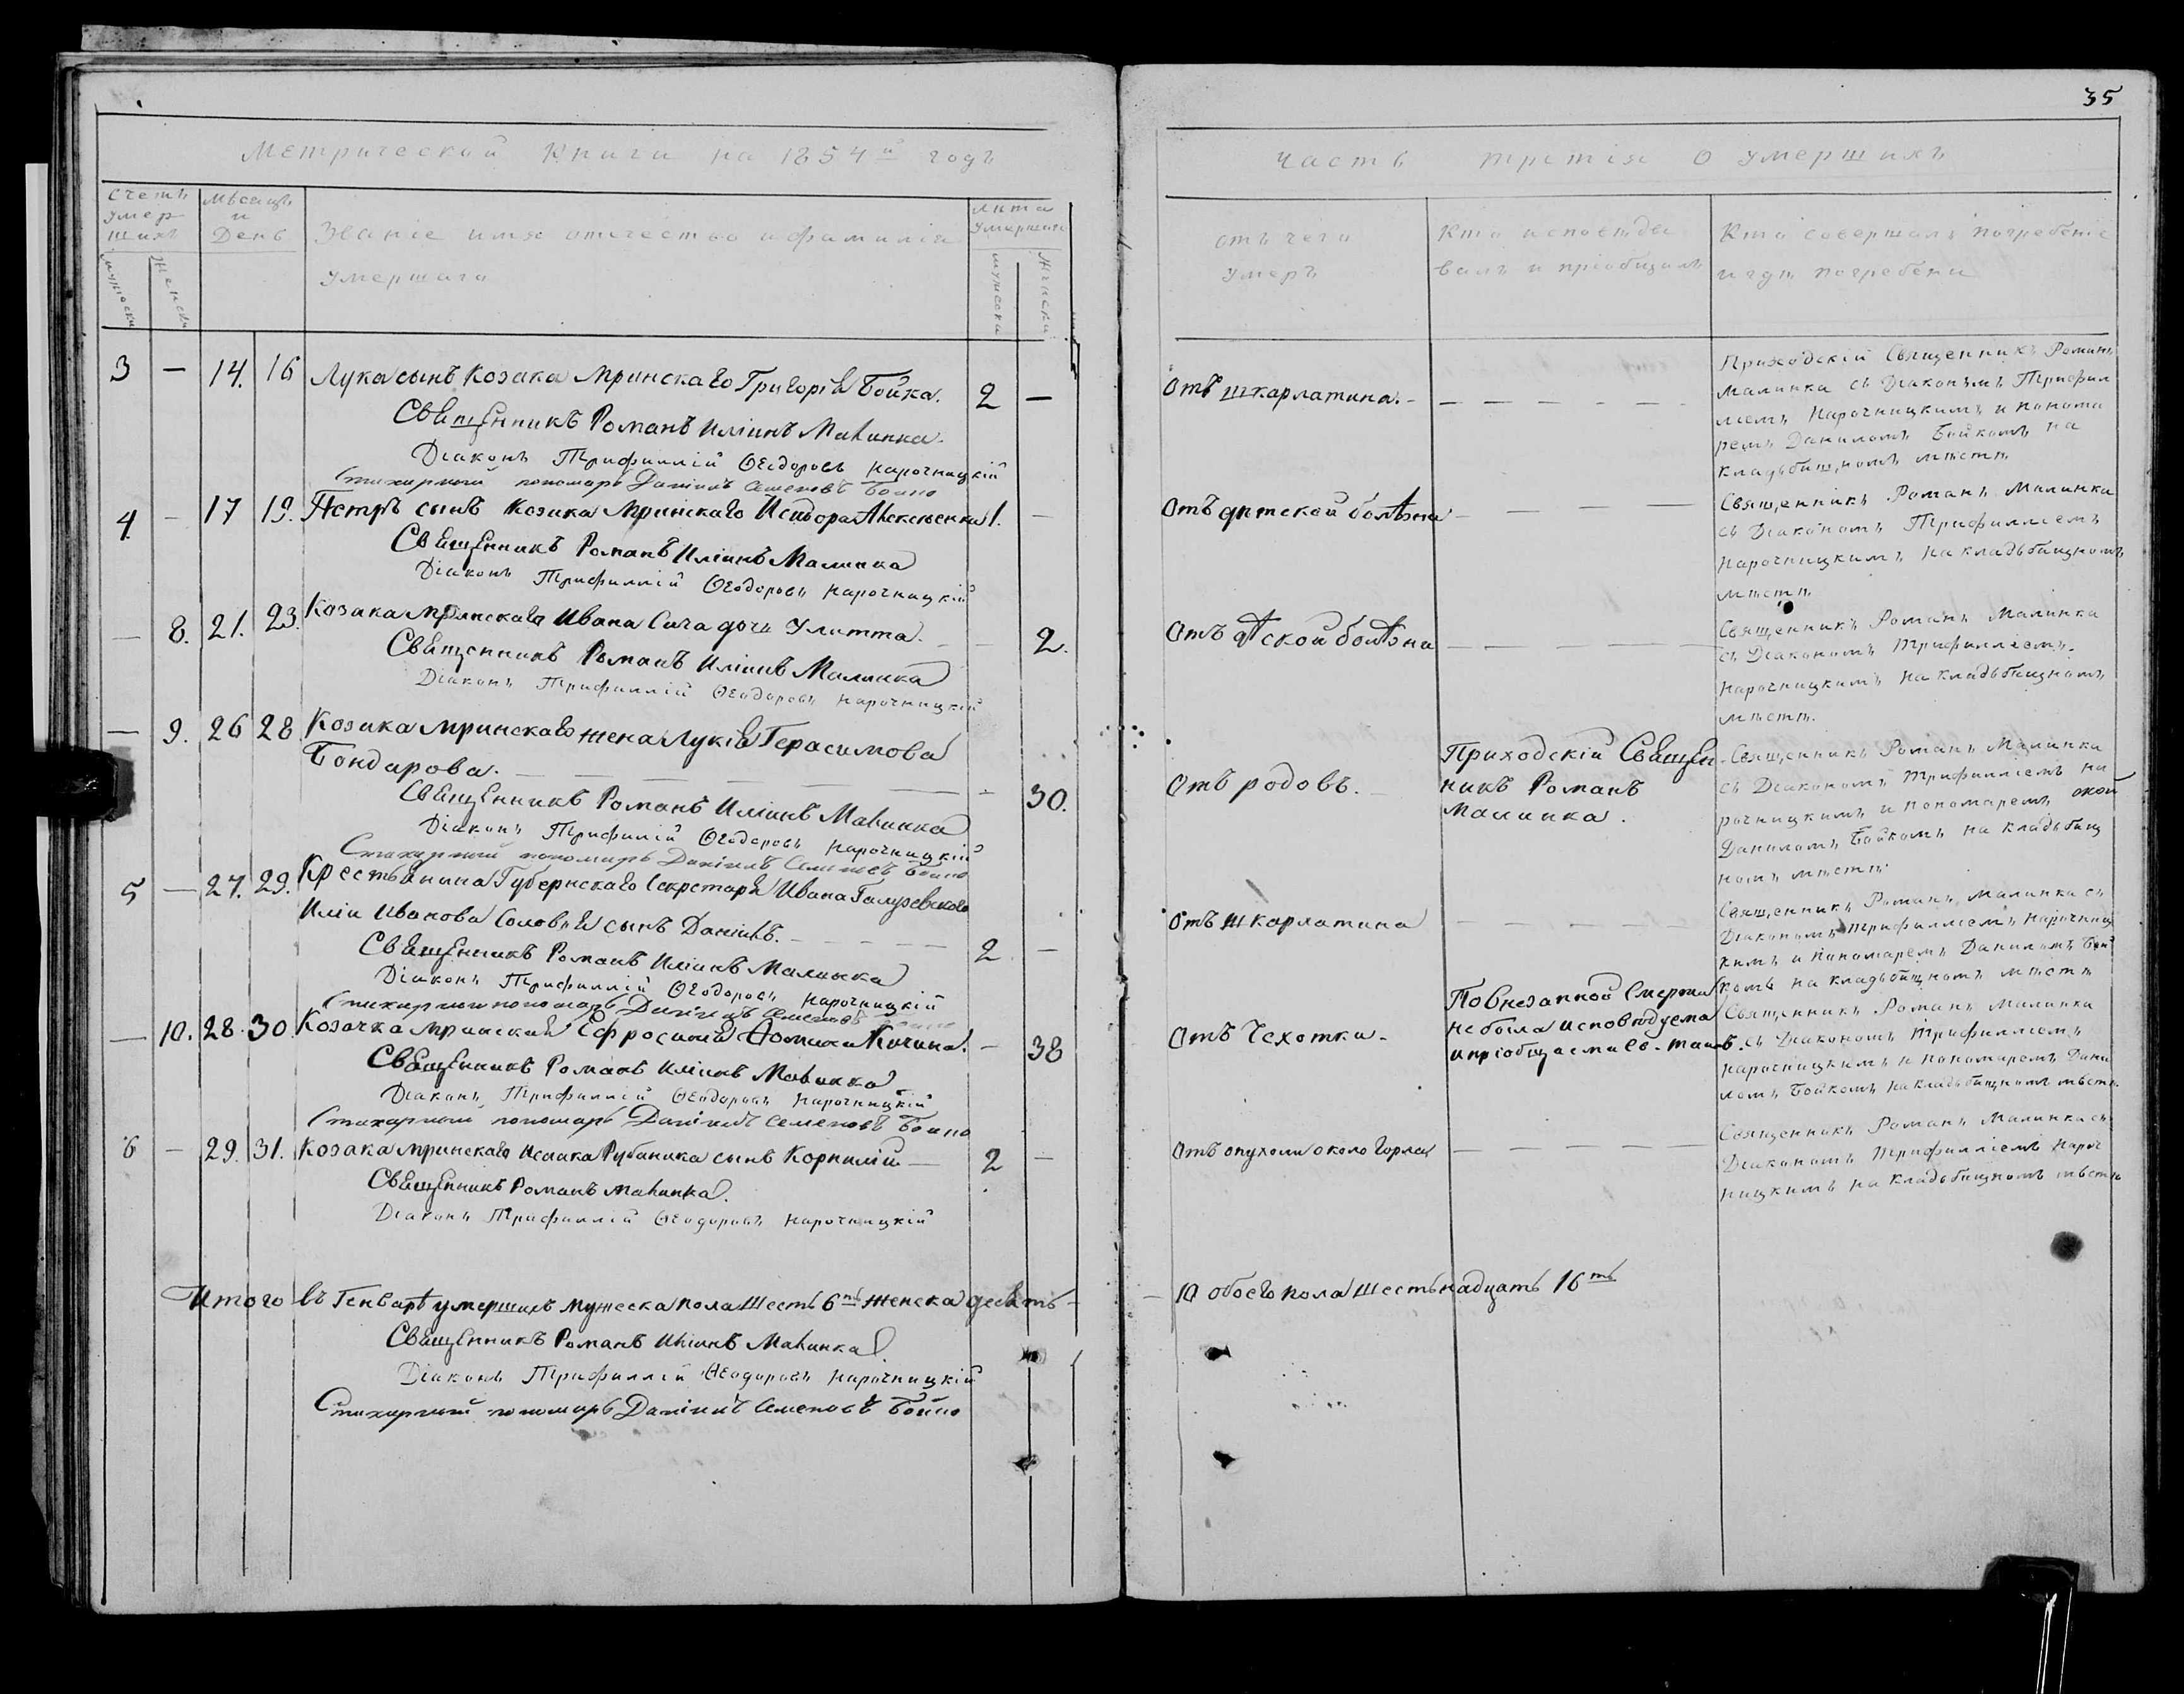 Метрической Книги на 1854й годъ
Счетъ умершихъ
Мѣсяцъ и День
Званіе имя отечество и фамилія умершаго
Лѣта Умершихъ
мужеска
женска
мужеска
женска
3 — 14. 16 Лука сынъ Козака Мринскаго Григорія Бойка. 2 —
Священникъ Романъ Иліинъ Малинка
Діаконъ Трифиллій Ѳеодоровъ Нарочницкій
Стихарный пономарь Даніилъ Семеновъ Бойко
4. — 17 19. Петръ сынъ Козака Мринскаго Исидора Алексюенка 1. —
Священникъ Романъ Иліинъ Малинка
Діаконъ Трифиллій Ѳеодоровъ Нарочницкій
— 8. 21. 23. Козака Мринскаго Ивана Сича дочь Улитта. — 2.
Священникъ Романъ Иліинъ Малинка
Діаконъ Трифиллій Ѳеодоровъ Нарочницкій
— 9. 26 28 Козака Мринскаго жена Лукія Герасимова
Бондарова. — — — — — 30.
Священникъ Романъ Иліинъ Малинка
Діаконъ Трифилій Ѳеодоровъ Нарочницкій
Стихарный пономарь Даніилъ Семеновъ Бойко
5 — 27. 29. Крестьянина Губернскаго Секретаря Ивана
Иліи Иванова Соловья сынъ Даніилъ. — — — 2 —
Священникъ Романъ Иліинъ Малинка
Діаконъ Трифиллій Ѳеодоровъ Нарочницкій
Стихарный пономарь Даніилъ Семеновъ Бойко
— 10. 28. 30 Козачка Мринская Ефросинія — 38
Священникъ Романъ Иліинъ Малинка
Діаконъ Трифиллій Ѳеодоровъ Нарочницкій
Стихарный пономарь Даніилъ Семеновъ Бойко
6 — 29. 31. Козака Мринскаго Исаака Рубаника сынъ Корнилій — 2 —
Священникъ Романъ Малинка.
Діаконъ Трифиллій Ѳеодоровъ Нарочницкій
Итого въ Генварѣ умершихъ мужеска пола шесть 6ть женска десять —
Священникъ Романъ Иліинъ Малинка
Діаконъ Трифиллій Ѳеодоровъ Нарочницкій
Стихарный пономарь Даніилъ Семеновъ Бойко
35
Часть третія о умершихъ
Отъ чего умеръ
Кто исповѣдывалъ и пріобщалъ
Кто совершалъ погребеніе и гдѣ погребены
Отъ шкарлатина. — — — — — —
Приходскій Священникъ Романъ
Малинка съ Діакономъ Трифил
ліемъ Нарочницкимъ и понома
ремъ Даниломъ Бойкомъ на
кладьбищномъ мѣстѣ
Отъ дѣтской болѣзни — — — —
Священникъ Романъ Малинка
съ Діакономъ Трифилліемъ
Нарочницкимъ на кладьбищномъ
мѣстѣ
Отъ дѣской болѣзни — — — —
Священникъ Романъ Малинка
съ Діакономъ Трифилліемъ
Нарочницкимъ на кладьбищномъ
мѣстѣ.
Отъ родовъ.
Приходскій Священ
никъ Романъ
Малинка.
Священникъ Романъ Малинка
съ Діакономъ Трифилліемъ На
рочницкимъ и пономаремъ
Даниломъ Бойкомъ на кладьбищ
номъ мѣстѣ
Отъ шкарлатина — — — —
Священникъ Романъ Малинка съ
Діакономъ Трифилліемъ Нарочниц
кимъ и пономаремъ Даниломъ Бой
комъ на кладьбищномъ мѣстѣ
Отъ Чехотки.
По внезапной смерти
не была исповѣдуема
и пріобщаема св. таинъ.
Священникъ Романъ Малинка
съ Діакономъ Трифилліемъ
Нарочницкимъ и пономаремъ Дани
ломъ Бойкомъ на кладьбищномъ мѣстѣ
Отъ опухоли около горла — — — —
Священникъ Романъ Малинка съ
Діакономъ Трифилліемъ Нароч
ницкимъ на кладьбищномъ мѣстѣ
— 10 обоего пола шестьнадцать 16ть